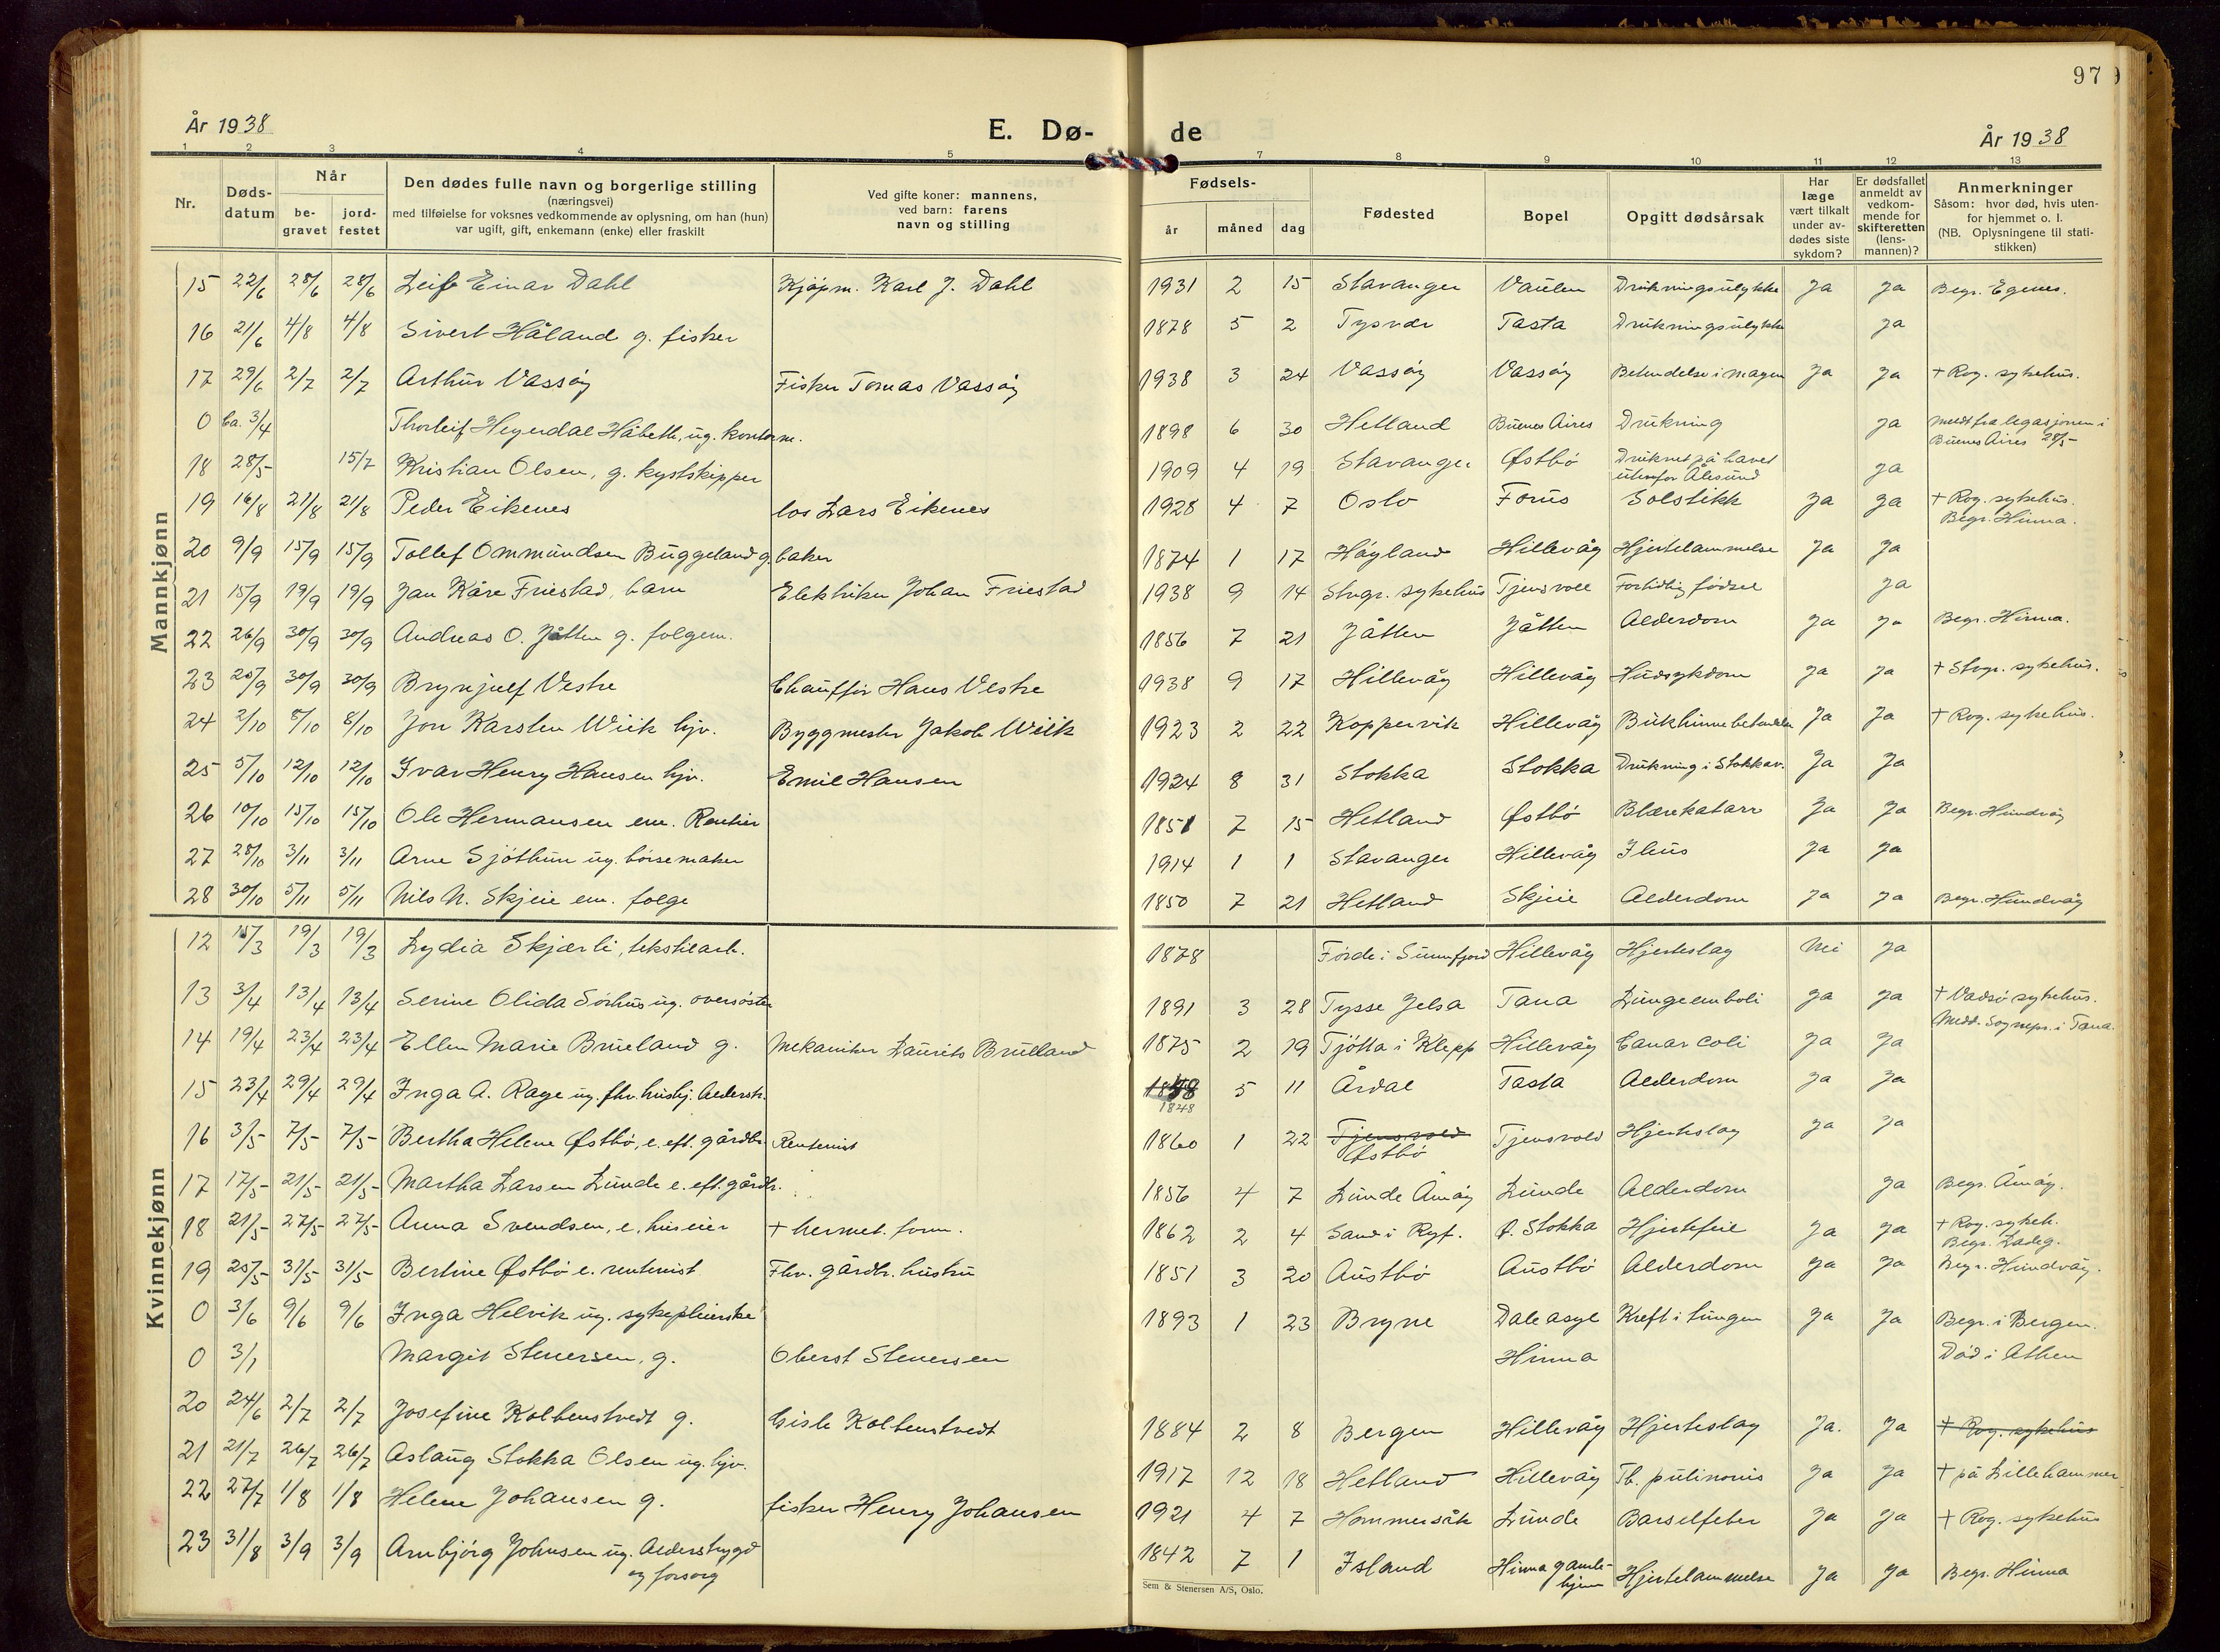 97
År 1938
E. Dø-
de
År 1938
1 2 3 4 5 7 8 9 10 11 12 13
Nr. Døds-datum Når be-gravet jord-festet Den dødes fulle navn og borgerlige stilling (næringsvei) med tilføielse for voksnes vedkommende av oplysning, om han (hun) var ugift, gift, enkemann (enke) eller fraskilt Ved gifte koner: mannens, ved barn: farens navn og stilling Fødsels- år måned dag Fødested Bopel Opgitt dødsårsak Har læge vært tilkalt under av-dødes siste sykdom? Er dødsfallet anmeldt av vedkom-mende for skifteretten (lens-mannen)? Anmerkninger Såsom: hvor død, hvis uten-for hjemmet o. l. (NB. Oplysningene til stati-stikken)
Mannkjønn
15 22/6 28/6 28/6 Leif Einar Dahl Kjøpm. Karl J. Dahl 1931 2 15 Stavanger Vaulen Drukningsulykke Ja Ja Begr. Egenes.
16 21/6 4/8 4/8 Sivert Håland g. fisker 1878 5 2 Tysvær Tasta Drukningsulykke Ja
17 29/6 2/7 2/7 Arthur Vassøy Fisker Tomas Vassøy 1938 3 24 Vassøy Vassøy Betendelse i magen Ja Ja + Rog. sykehus.
0 Ca. 3/4 Thorleif Heyerdal Håbeth, ug. kontorm. 1898 6 30 Hetland Buenos Aires Drukning Ja Meldt fra legasjonen i Buenos Aires 28/5
18 28/5 15/7 Kristian Olsen, g. kystskipper 1909 4 19 Stavanger Østbø Druknet på havet utenfor Ålesund Ja
19 16/8 21/8 21/8 Peder Eikenes los Lars Eikenes 1928 4 7 Oslo Forus Solstikk Ja Ja + Rog. sykehus. Begr. Hinna.
20 9/9 15/9 15/9 Tollef Ommundsen Buggeland g. baker 1874 1 17 Høyland Hillevåg Hjertelammelse Ja Ja
21 15/9 19/9 19/9 Jan Kåre Friestad, barn Elektriker Johan Friestad 1938 9 14 Stvgr. sykehus Tjensvoll Fortidlig fødsel Ja
22 26/9 30/9 30/9 Andreas O. Jåtten g. folgem. 1856 7 21 Jåtten Jåtten Alderdom Ja Ja Begr. Hinna.
23 25/9 30/9 30/9 Brynjulf Vestre Chauffør Hans Vestre 1938 9 17 Hillevåg Hillevåg Hudsykdom Ja Ja + Stvgr. sykehus.
24 2/10 8/10 8/10 Jon Karsten Wiik hjv. Byggmester Jakob Wiik 1923 2 22 Koppervik Hillevåg Bukhinnebetendelse Ja Ja + Rog. sykehus.
25 5/10 12/10 12/10 Ivar Henry Hansen hjv. Emil Hansen 1924 8 31 Stokka Stokka Drukning i Stokkav. Ja Ja
26 10/10 15/10 15/10 Ole Hermansen em. Rentier 1851 7 15 Hetland Østbø Blærekatarr Ja Ja Begr. Hundvåg
27 28/10 3/11 3/11 Arne Sjøthun ug. børsemaker 1914 1 1 Stavanger Hillevåg Ileus Ja Ja
28 30/10 5/11 5/11 Nils N. Skjeie em. folge 1850 7 21 Hetland Skjeie Alderdom Ja Ja Begr. Hundvåg
Kvinnekjønn
12 15/3 19/3 19/3 Lydia Skjærli, tekstilarb. 1878 Førde i Sunnfjord Hillevåg Hjerteslag Nei Ja
13 3/4 13/4 13/4 Serine Olida Sørhus ug. oversøster 1891 3 28 Tysse Jelsa Tana Lungeemboli Ja Ja + Vadsø sykehus. Medd. Sognepr. i Tana.
14 19/4 23/4 23/4 Ellen Marie Brueland g. Mekaniker Laurits Brulland 1875 2 19 Tjøtta i Klepp Hillevåg Cancer coli Ja Ja
15 23/4 29/4 29/4 Inga A. Rage ug. fhv. hushj. Alderstr. 1848 5 11 Årdal Tasta Alderdom Ja Ja
16 3/5 7/5 7/5 Bertha Helene Østbø, e. eft. gårdbr. Rentenist 1860 1 22 Tjensvold Østbø Tjensvold Hjerteslag Ja Ja
17 17/5 21/5 21/5 Martha Larsen Lunde e. eft. gårdbr. 1856 4 7 Lunde Åmøy Lunde Alderdom Ja Begr. Åmøy.
18 21/5 27/5 27/5 Anna Svendsen, e. huseier + hermet. form. 1862 2 4 Sand i Ryf. Ø. Stokka Hjertefeil Ja Ja + Rog. sykeh. Begr. Ladeg.
19 25/5 31/5 31/5 Bertine Østbø e. rentenist Fhv. gårdbr. hustru 1851 3 20 Austbø Austbø Alderdom Ja Ja Begr. Hundvåg.
0 3/6 9/6 9/6 Inga Helvik ug. sykepleierske 1893 1 23 Bryne Dale asyl Kreft i lungen Ja Ja Begr. i Bergen.
0 3/1 Margit Stenersen, g. Oberst Stenersen Hinna Død i Athen
20 24/6 2/7 2/7 Josefine Kolbenstvedt g. Gisle Kolbenstvedt 1884 2 8 Bergen Hillevåg Hjerteslag Ja. Ja + Rog. sykehus
21 21/7 26/7 26/7 Aslaug Stokka Olsen ug. hjv. 1917 12 18 Hetland Hillevåg Tb. pulmonis Ja Ja + på Lillehammer
22 27/7 1/8 1/8 Helene Johansen g. fisker Henry Johansen 1921 4 7 Hommersåk Lunde Barselfeber Ja Ja + Rog. sykehus
23 31/8 3/9 3/9 Arnbjørg Johnsen ug. Alderstrygd og forsorg 1842 7 1 Island Hinna gamle-hjem Hjertelammelse Ja Ja Begr. Hinna
Sem & Stenersen A/S, Oslo.